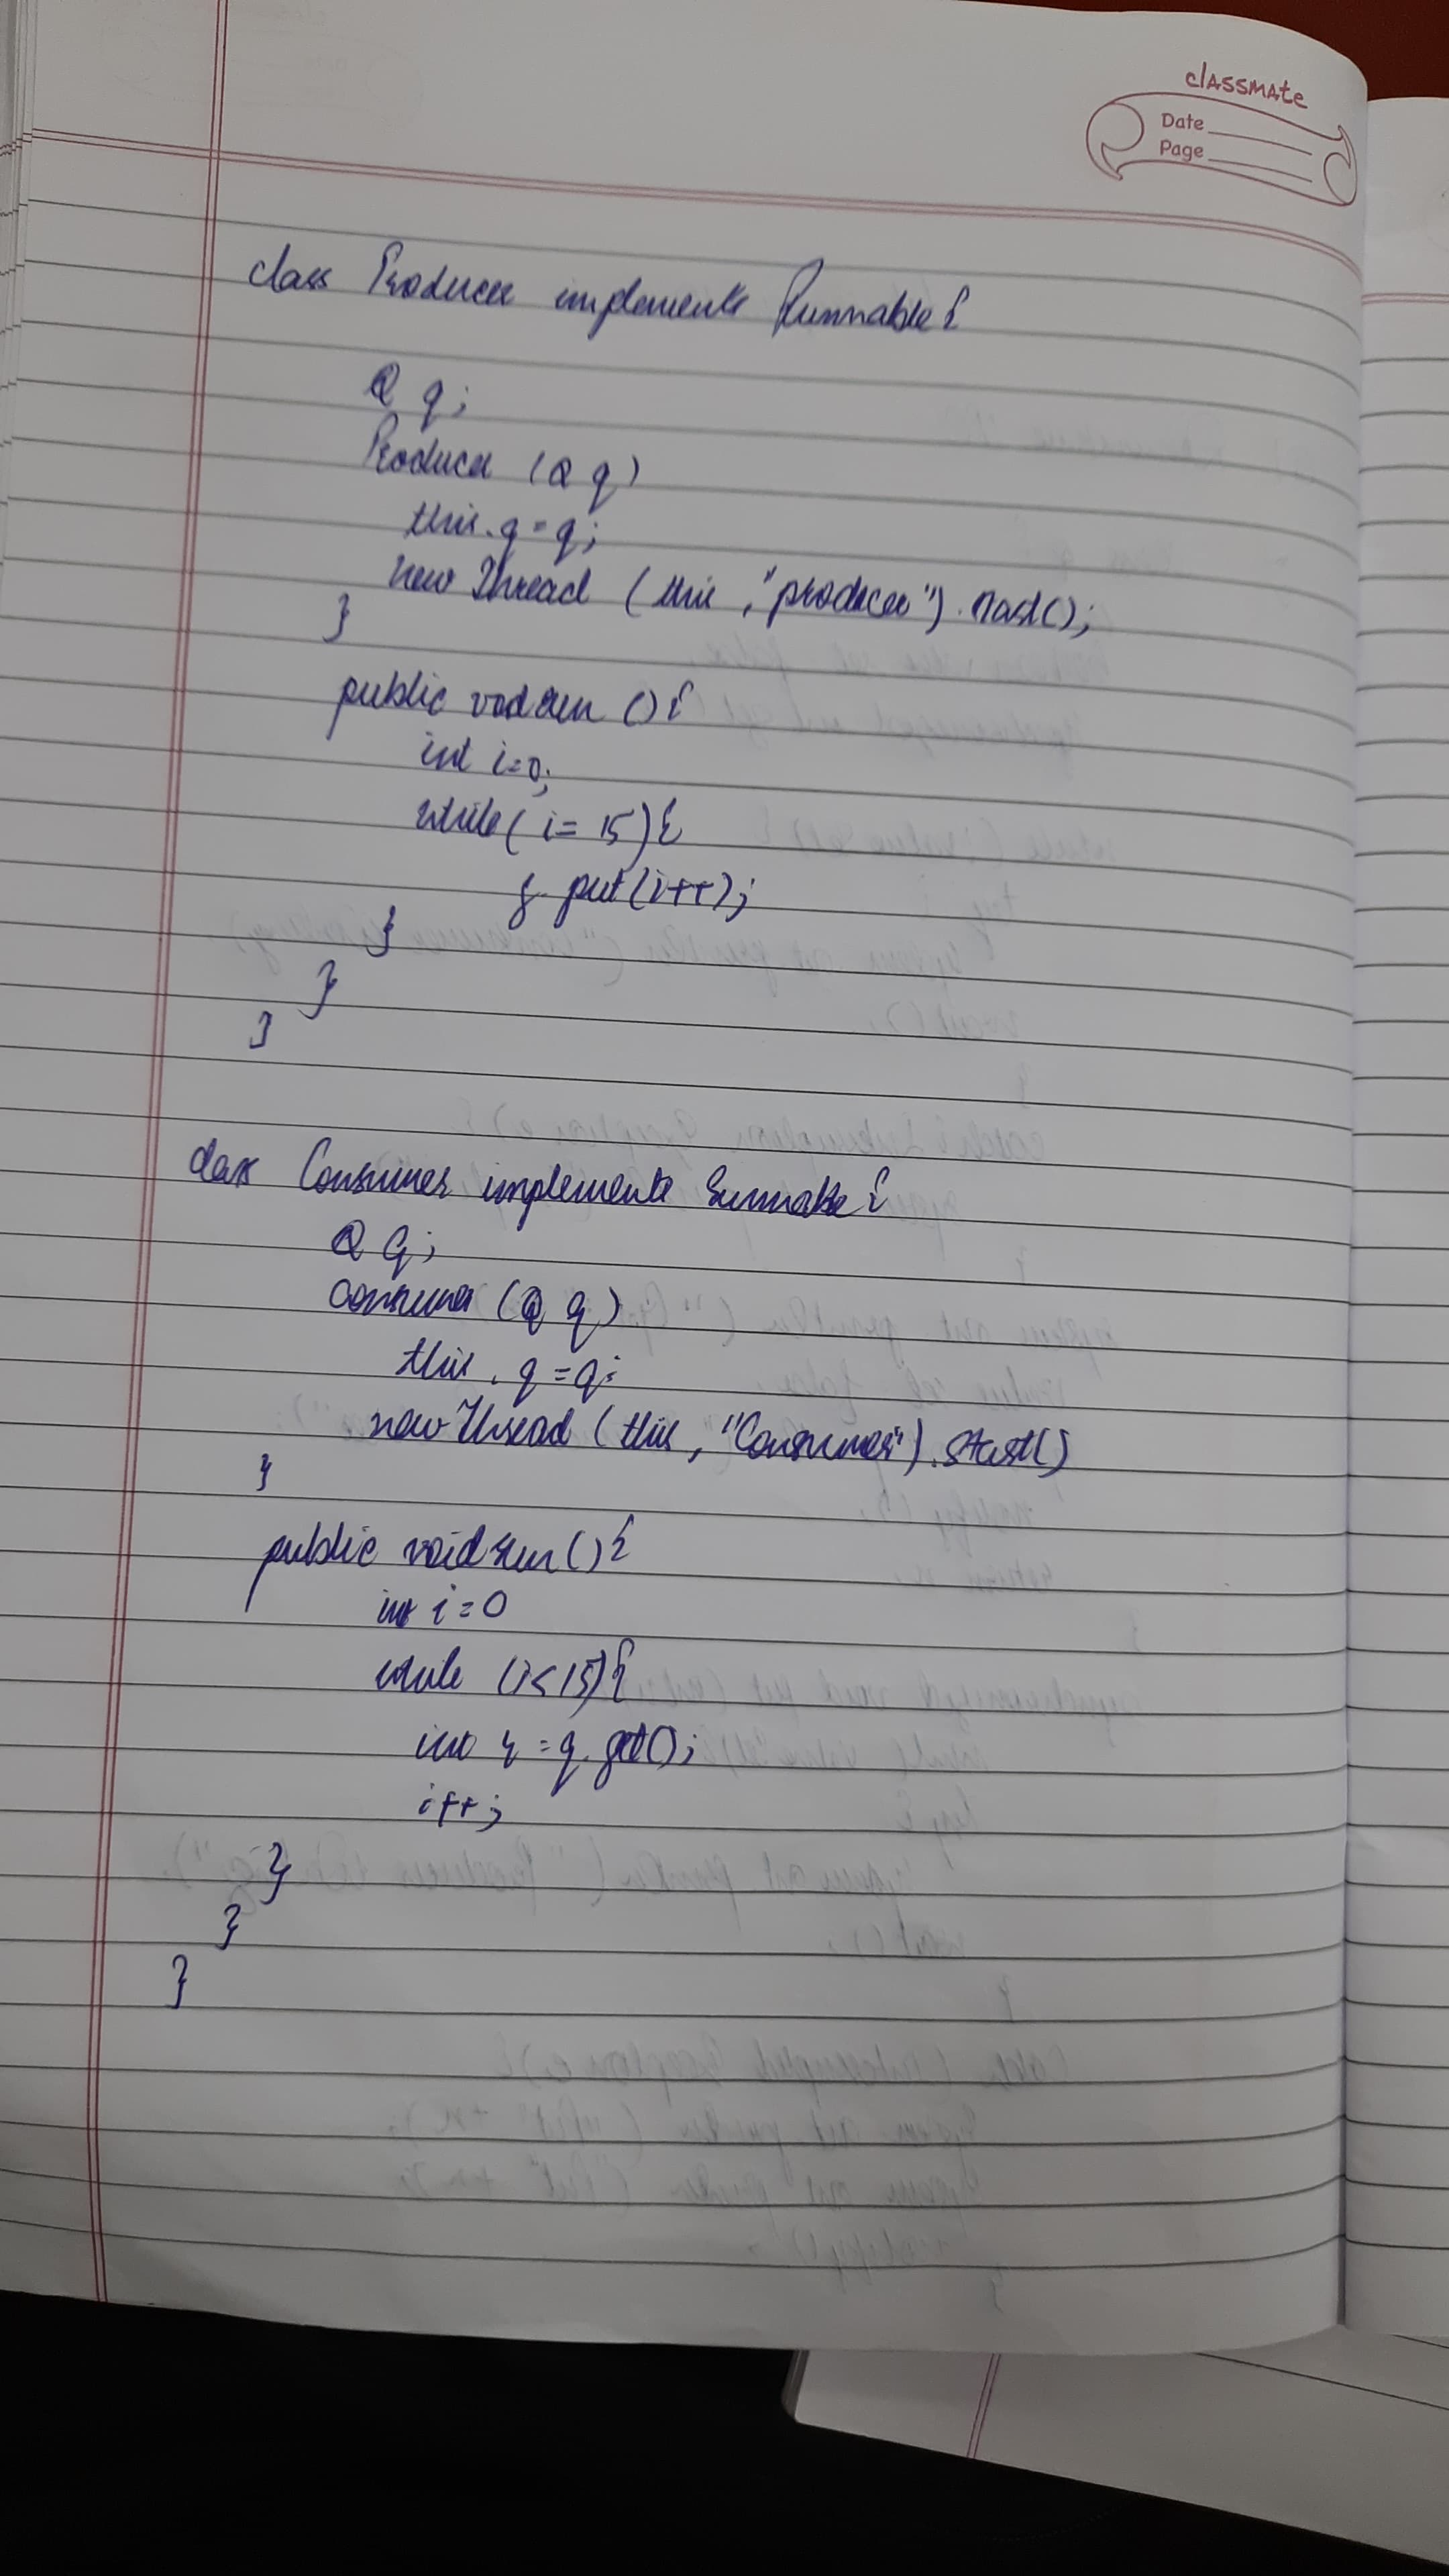 classmate
Date
Page
class Producer implements Runnable {
Q q;
Producer (Q q)
this.q = q;
new Thread (this, "producer").start();
}
public void run () {
int i=0;
while ( i = 15) {
q. put (i++);
}
}
}
class Consumer implements Runnable {
Q q;
Consumer (Q q)
this. q = q;
new Thread (this, "Consumer").start()
}
public void run () {
int i = 0
while (i < 15) {
int r = q. get();
i++;
}
}
}